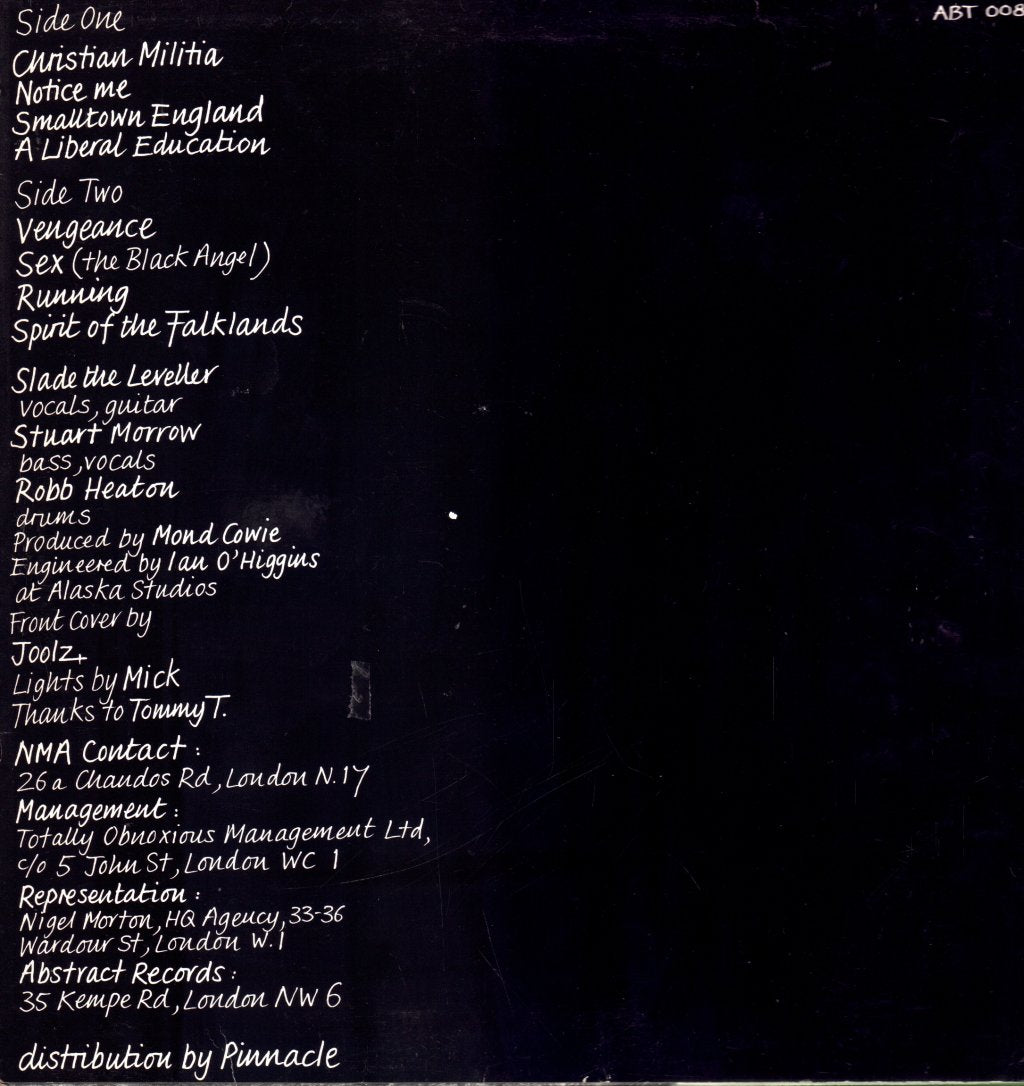 ABT 008
Side One
Christian Militia
Notice me
Smalltown England
A Liberal Education
Side Two
Vengeance
Sex (the Black Angel)
Running
Spirit of the Falklands
Slade the Leveller
vocals, guitar
Stuart Morrow
bass, vocals
Robb Heaton
drums
Produced by Mond Cowie
Engineered by Ian O'Higgins
at Alaska Studios
Front Cover by
Joolz
Lights by Mick
Thanks to Tommy T.
NMA Contact :
26a Chandos Rd, London N.17
Management :
Totally Obnoxious Management Ltd,
c/o 5 John St, London WC 1
Representation :
Nigel Morton, HQ Agency, 33-36
Wardour St, London W.1
Abstract Records :
35 Kempe Rd, London NW 6
distribution by Pinnacle